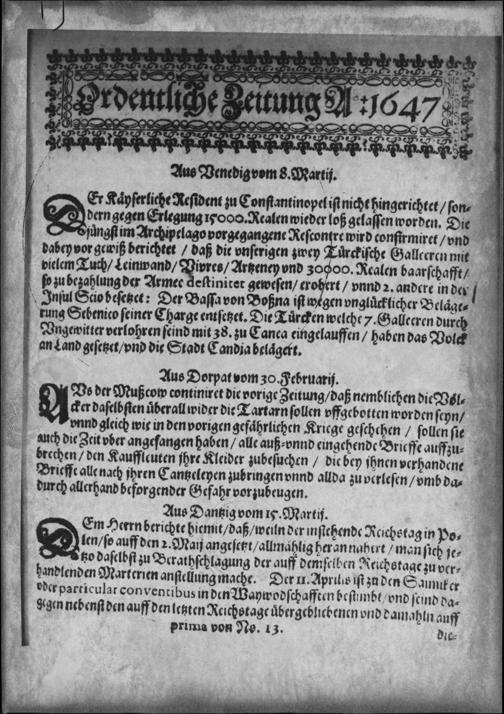 Ordentliche Zeitung Aᵒ: 1647
Aus Venedig vom 8. Martij.
DEr Käyserliche Resident zu Constantinopel ist nicht hingerichtet / son-
dern gegen Erlegung 15000. Realen wieder loß gelassen worden. Die
jüngst im Archipelago vorgegangene Rescontre wird confirmiret / vnd
dabey vor gewiß berichtet / daß die vnserigen zwey Türckische Galleeren mit
vielem Tuch / Leinwand / Vivres / Artzeney vnd 30000. Realen baarschafft /
so zu bezahlung der Armee destiniret gewesen / erobert / vnnd 2. andere in der
Insul Scio besetzet: Der Bassa von Boßna ist wegen vnglücklicher Beläge-
rung Sebenico seiner Charge entsetzet. Die Türcken welche 7. Galleeren durch
Vngewitter verlohren seind mit 38. zu Canea eingelauffen / haben das Volck
an Land gesetzet / vnd die Stadt Candia belägert.
Aus Dorpat vom 30. Februarij.
AVs der Mußcow continiret die vorige Zeitung / daß nemblichen die Völ-
cker daselbsten überall wider die Tartarn sollen vffgebotten worden seyn /
vnnd gleich wie in den vorigen gefährlichen Kriege geschehen / sollen sie
auch die Zeit vber angefangen haben / alle auß- vnnd eingehende Brieffe auffzu-
brechen / den Kauffleuten jhre Kleider zubesuchen / die bey jhnen verhandene
Brieffe alle nach jhren Cantzeleyen zubringen vnnd allda zu verlesen / vmb da-
durch allerhand besorgender Gefahr vorzubeugen.
Aus Dantzig vom 15. Martij.
DEm Herrn berichte hiemit / daß / weiln der instehende Reichstag in Po-
len / so auff den 2. Maij angesetzt / allmählig heran nahert / man sich je-
tzo daselbst zu Berathschlagung der auff demselben Reichstage zu ver-
handlenden Marterien anstellung mache. Der 11. Aprilus ist zu den
oder particular conventibus in den Waywodschafften bestimbt / vnd seind da-
gegen nebenst den auff den letzten Reichstage übergebliebenen vnd damahln auff
prima von No. 13.
die-